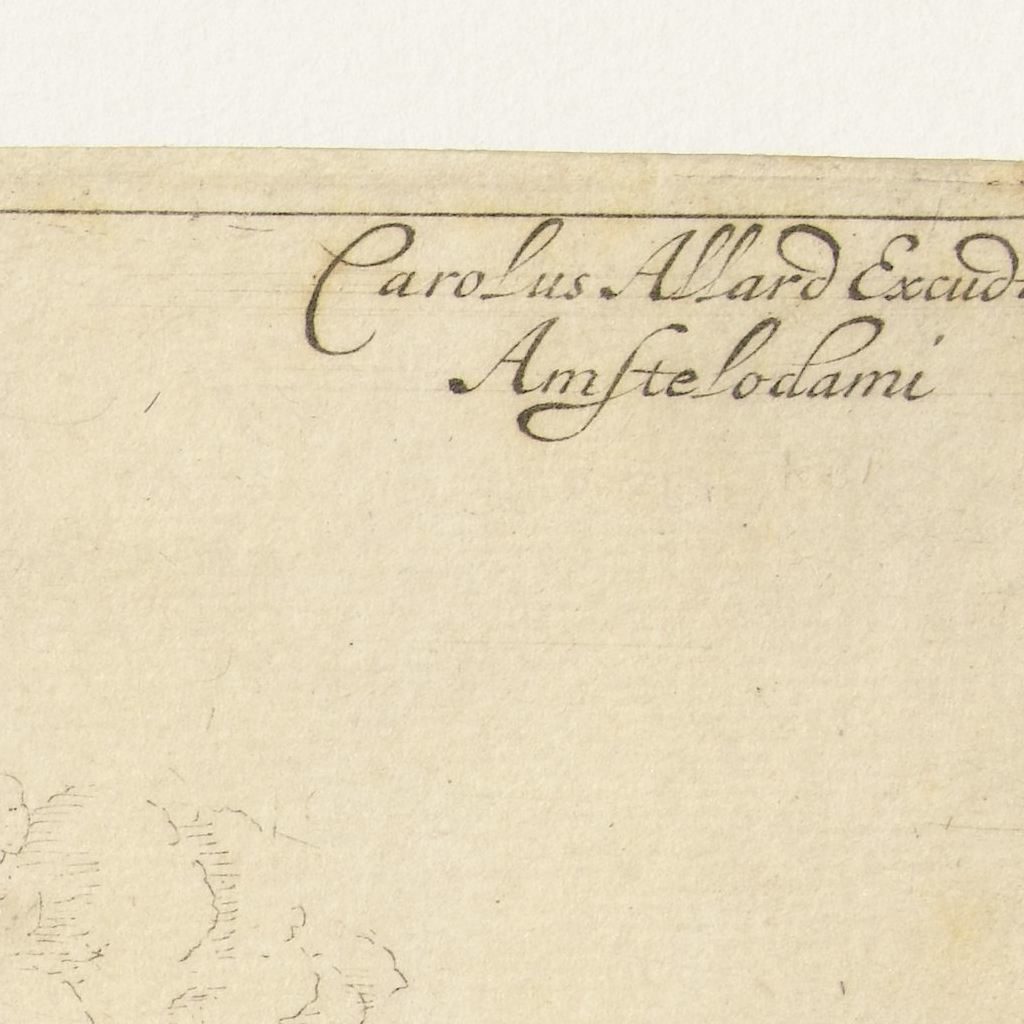 Carolus Allard Excud
Amſtelodami